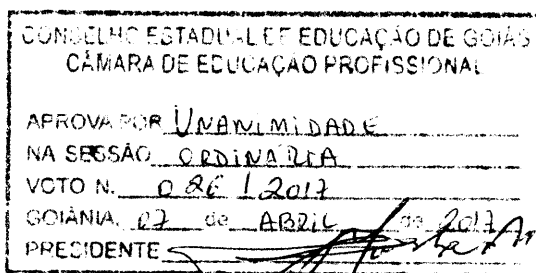 CONSELHO ESTADUAL DE EDUCAÇÃO DE GOIÁS
CÂMARA DE EDUCAÇÃO PROFISSIONAL
APROVA POR UNANIMIDADE
NA SESSÃO ORDINÁRIA
VOTO N. 026 / 2017
GOIÂNIA, 07 de ABRIL de 2017
PRESIDENTE